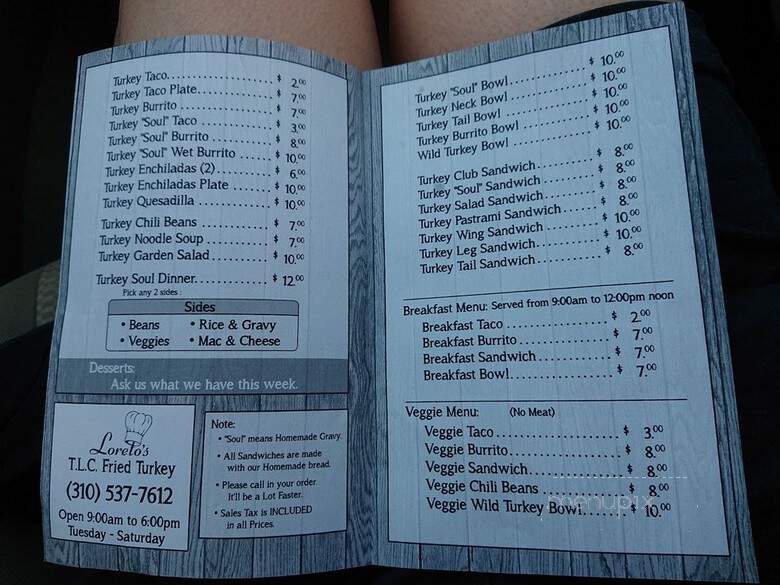 Turkey Taco.................. $ 2.00
Turkey Taco Plate............ $ 7.00
Turkey Burrito .............. $ 7.00
Turkey "Soul" Taco .......... $ 3.00
Turkey "Soul" Burrito ....... $ 8.00
Turkey "Soul" Wet Burrito ... $ 10.00
Turkey Enchiladas (2)........ $ 6.00
Turkey Enchiladas Plate ..... $ 10.00
Turkey Quesadilla ........... $ 10.00
Turkey Chili Beans .......... $ 7.00
Turkey Noodle Soup .......... $ 7.00
Turkey Garden Salad.......... $ 10.00
Turkey Soul Dinner........... $ 12.00
Pick any 2 sides :
Sides
• Beans • Rice & Gravy
• Veggies • Mac & Cheese
Desserts:
Ask us what we have this week.
Loreto's
T.L.C. Fried Turkey
(310) 537-7612
Open 9:00am to 6:00pm
Tuesday - Saturday
Note:
• "Soul" means Homemade Gravy.
• All Sandwiches are made
with our Homemade bread.
• Please call in your order.
It'll be a Lot Faster.
• Sales Tax is INCLUDED
in all Prices.
Turkey "Soul" Bowl........... $ 10.00
Turkey Neck Bowl ............ $ 10.00
Turkey Tail Bowl ............ $ 10.00
Turkey Burrito Bowl ......... $ 10.00
Wild Turkey Bowl ............ $ 10.00
Turkey Club Sandwich......... $ 8.00
Turkey "Soul" Sandwich ...... $ 8.00
Turkey Salad Sandwich........ $ 8.00
Turkey Pastrami Sandwich..... $ 8.00
Turkey Wing Sandwich ........ $ 10.00
Turkey Leg Sandwich.......... $ 10.00
Turkey Tail Sandwich......... $ 8.00
Breakfast Menu: Served from 9:00am to 12:00pm noon
Breakfast Taco .............. $ 2.00
Breakfast Burrito ........... $ 7.00
Breakfast Sandwich........... $ 7.00
Breakfast Bowl............... $ 7.00
Veggie Menu: (No Meat)
Veggie Taco.................. $ 3.00
Veggie Burrito............... $ 8.00
Veggie Sandwich.............. $ 8.00
Veggie Chili Beans .......... $ 8.00
Veggie Wild Turkey Bowl...... $ 10.00
menupix